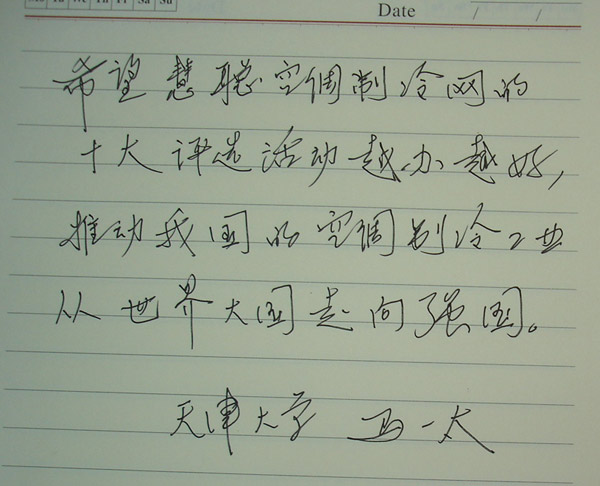 Mo Tu We Th Fr Sa Su
Date / /
希望慧聪空调制冷网的
十大评选活动越办越好,
推动我国的空调制冷工业
从世界大国走向强国。
天津大学 马一太